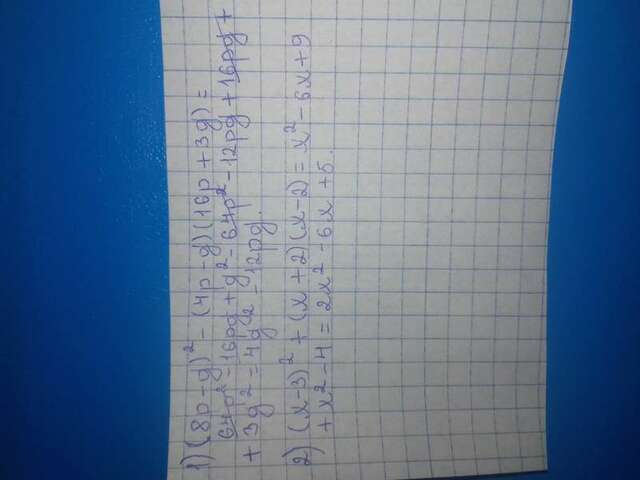 1) (8p-g)² - (4p-g)(16p+3g) =
64p² - 16pg + g² - 64p² - 12pg + 16pg +
+ 3g² = 4g² - 12pg.
2) (x-3)² + (x+2)(x-2) = x² - 6x + 9
+ x² - 4 = 2x² - 6x + 5.